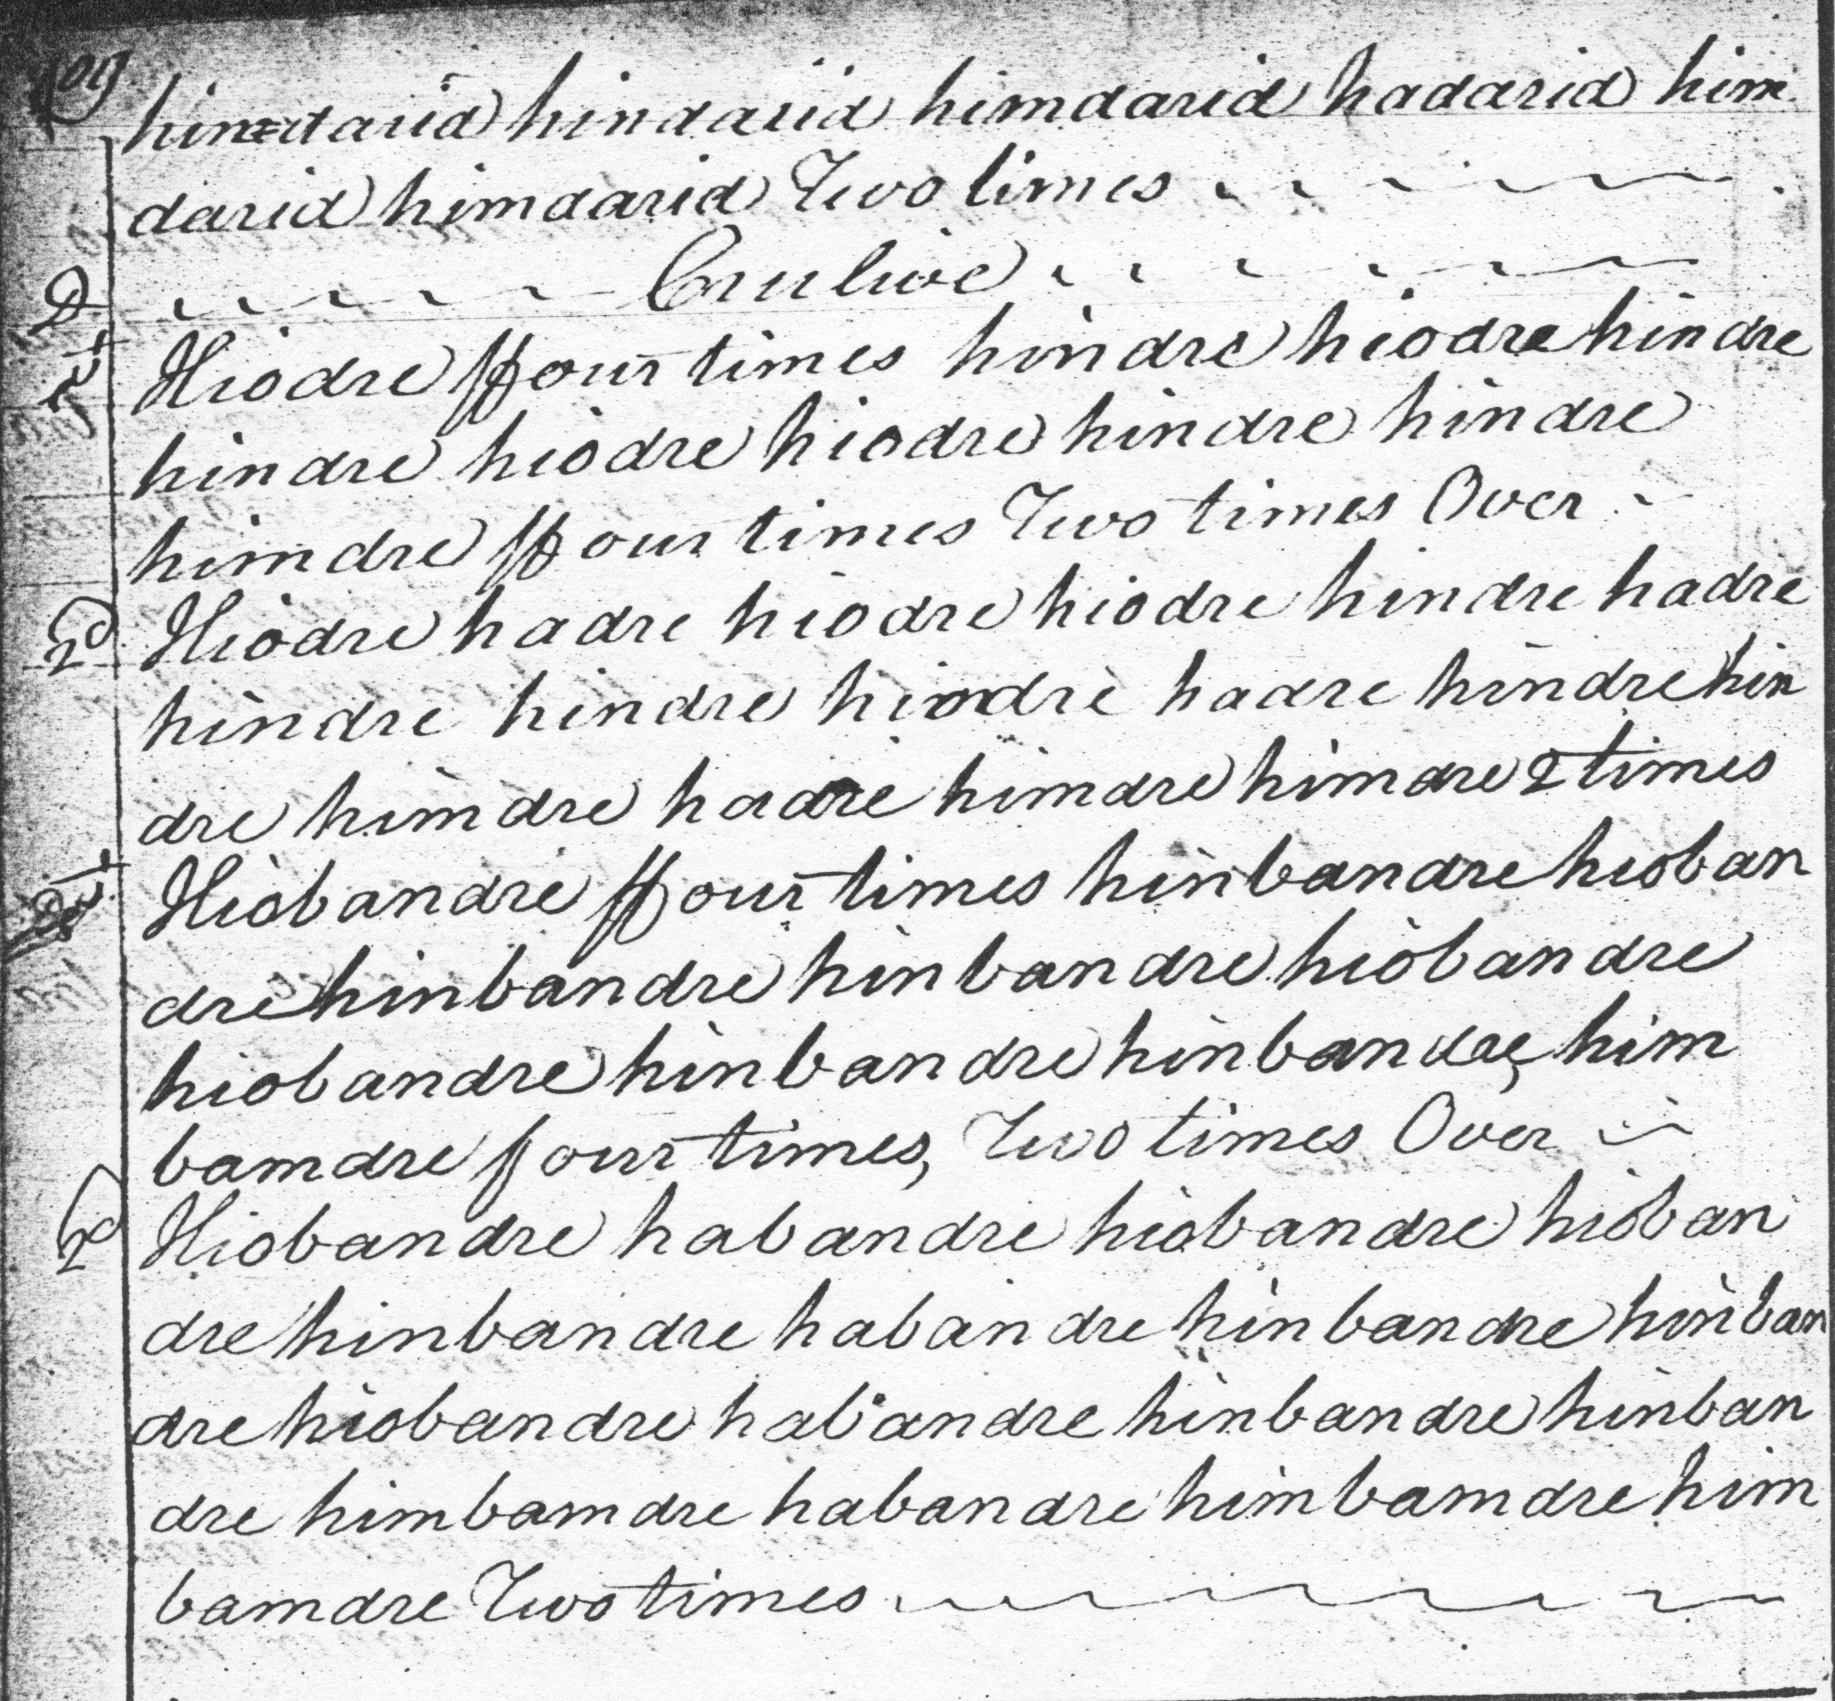 himdarid hindarid himdarid hadarid him
darid himdarid Two times
D Crulivie
1st Hiodre ffour times hindre hiodre hindre
hindre hiodre hiodre hindre hindre
himdre ffour times Two times Over
2d Hiodre hadre hiodre hiodre hindre hadre
hindre hindre hiodre hadre hindre hin
dre himdre hadre himdre himdre 2 times
Hiobandre ffour times hinbandre hioban
dre hinbandre hinbandre hiobandre
hiobandre hinbandre hinbandre him
bamdre four times, Two times Over
2d Hiobandre habandre hiobandre hioban
dre hinbandre habandre hinbandre hinban
dre hiobandre habandre hinbandre hinban
dre himbamdre habandre himbamdre him
bamdre Two times